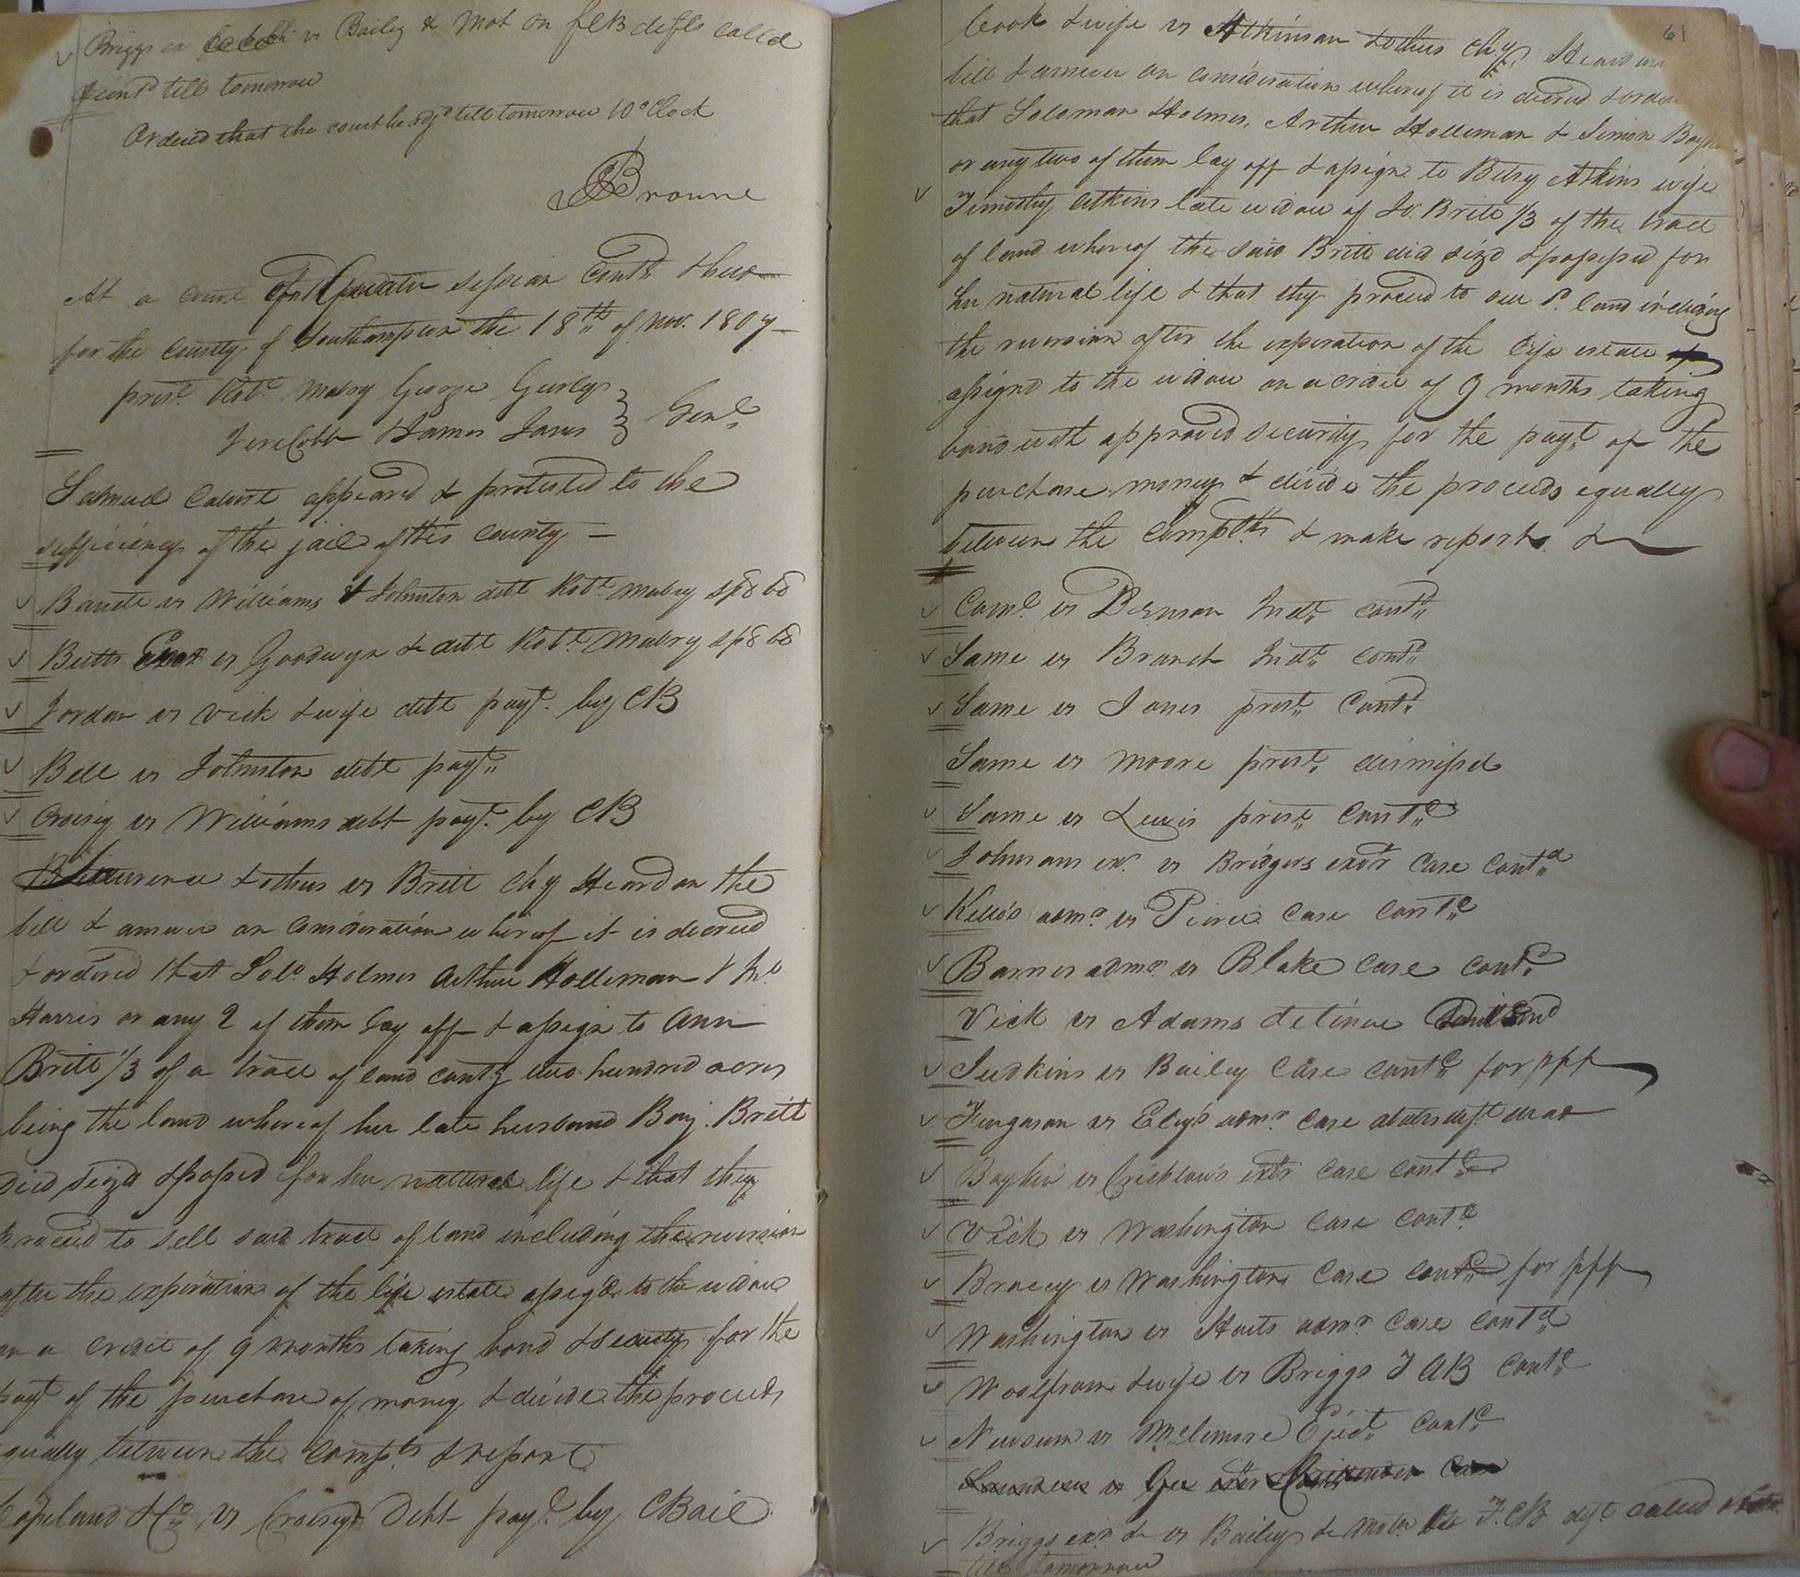 Briggs ex vs Bailey & Mot on FCB defts called
cont'd till tomorrow
Ordered that the court be adj'd till tomorrow 10 o'Clock
Browne
At a court of Quarter session Cont'd & held
for the County of Southampton the 18th of Nov. 1807
prest. Robt. Mabry George Gurley
Jere Cobb & James Jones Gent.
Samuel Calvert appeared & protested to the
sufficiency of the jail of this County
Barrett vs Williams & Johnston debt Robt. Mabry sp b
Butts Exor vs Goodwyn & debt Robt. Mabry sp b
Jordan vs Vick & wife debt payt. by CB
Bell vs Johnston debt payt.
vs Williams debt payt. by CB
Lawrence & others vs Britt Chy Heard on the
bill & answer on consideration whereof it is decreed
& ordered that Solo. Holmes Arthur Holleman &
Harris or any 2 of them lay off & assign to Ann
Britt 1/3 of a tract of land contg two hundred acres
being the land whereof her late husband Benj. Britt
died seizd & possd for her natural life & that they
proceed to sell said tract of land including the reversion
after the expiration of the life estate assigd to the widow
on a credit of 9 months taking bond & security for the
payt of the purchase of money & divide the proceeds
equally between the Compts & report
Copeland & Co vs debt payt by C Bail
61
Cook & wife vs Atkinson & others Chy Heard on
bill & answer on consideration whereof it is decreed & ordered
that Soloman Holmes, Arthur Holleman & Simon
or any two of them lay off & assign to Betsy Atkins wife
Timothy Atkins late widow of Jo. Britt 1/3 of the tract
of land whereof the said Britt died sizd & possessed for
her natural life & that they proceed to sell sd. land including
the reversion after the expiration of the life estate
assignd to the widow on a credit of 9 months taking
bond with approved security for the payt. of the
purchase money & divide the proceeds equally
between the Complts & make report &
Comd vs Indt. contd.
Same vs Branch Indt. contd.
Same vs Jones prest. Contd.
Same vs Moore prest. dismissd
Same vs Lewis prest. Contd.
Johnsons exr. vs Bridgers exors Case Contd.
Kello's admr vs Pierce Case Contd.
Barnes admr vs Blake Case contd.
Vick vs Adams detinue
Judkins vs Bailey Case contd. for plff
Ferguson vs Eley's admr. Case abates deft. dead
Boykin vs Crichlow's exor Case contd.
Vick vs Washington Case contd.
Bracey vs Washington Case contd. for plff
Washington vs Harts admr Case contd.
Woolfrom & wife vs Briggs TAB contd.
Newsum vs McLemore Eject. contd.
vs Gee exor Crittenden
Briggs exr & vs Bailey & Moton FCB deft called
till tomorrow